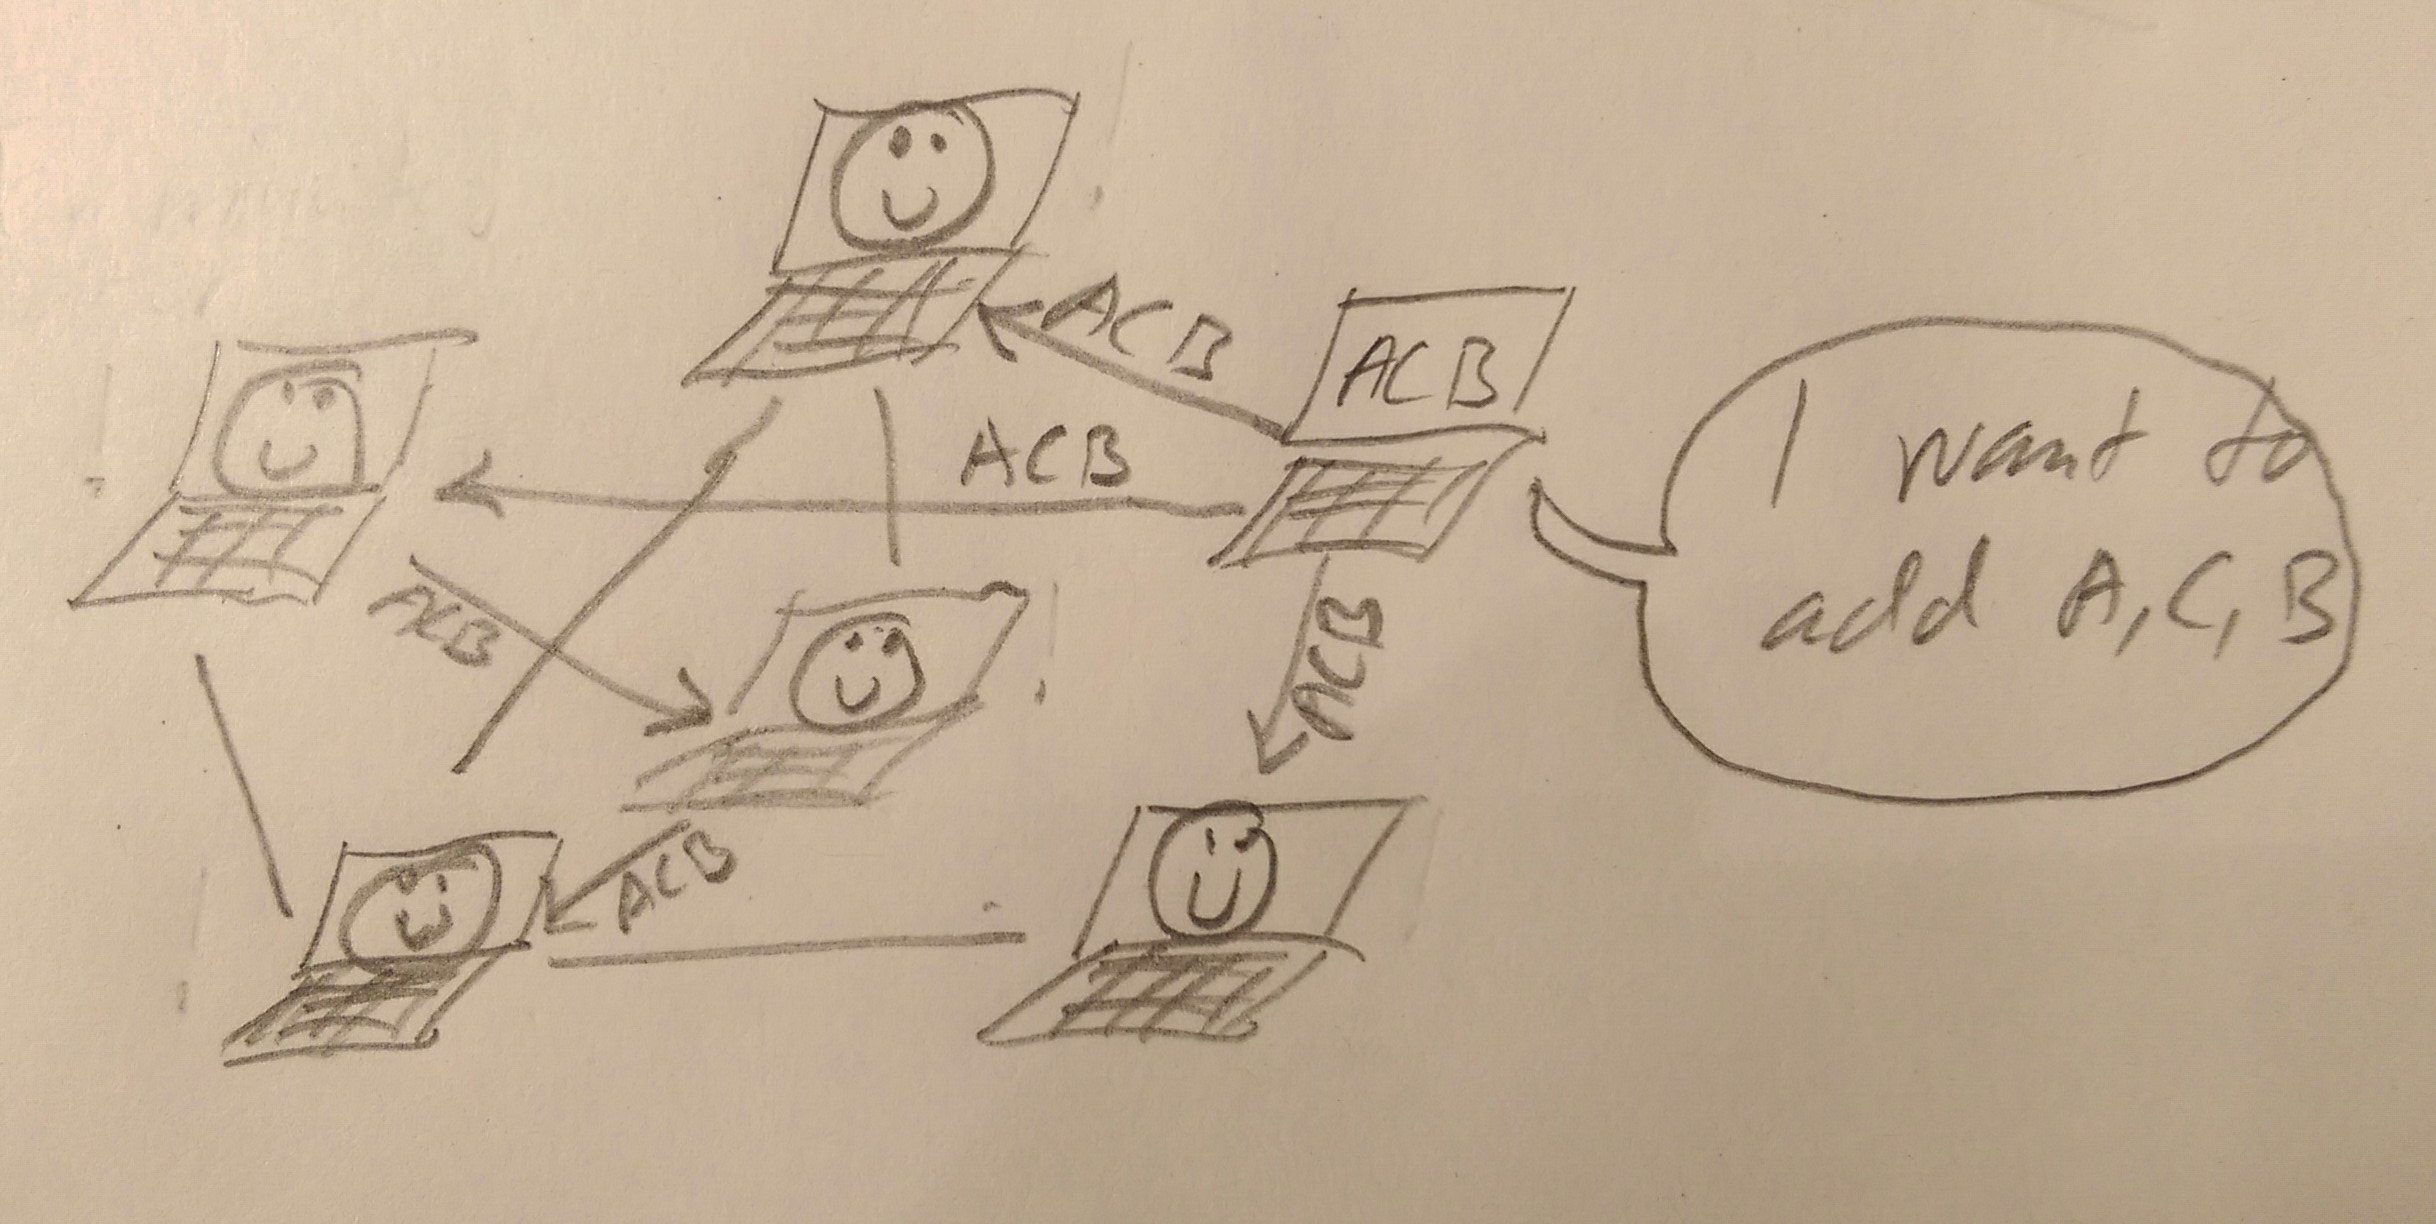 ACB
ACB
ACB
I want to
add A, C, B
ACB
ACB
ACB